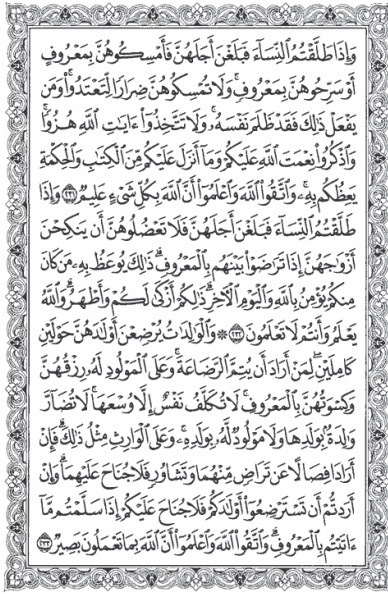 وَإِذَا طَلَّقْتُمُ ٱلنِّسَآءَ فَبَلَغْنَ أَجَلَهُنَّ فَأَمْسِكُوهُنَّ بِمَعْرُوفٍ
أَوْ سَرِّحُوهُنَّ بِمَعْرُوفٍۚ وَلَا تُمْسِكُوهُنَّ ضِرَارًا لِّتَعْتَدُوا۟ۚ وَمَن
يَفْعَلْ ذَٰلِكَ فَقَدْ ظَلَمَ نَفْسَهُۥۚ وَلَا تَتَّخِذُوٓا۟ ءَايَٰتِ ٱللَّهِ هُزُوًاۚ
وَٱذْكُرُوا۟ نِعْمَتَ ٱللَّهِ عَلَيْكُمْ وَمَآ أَنزَلَ عَلَيْكُم مِّنَ ٱلْكِتَٰبِ وَٱلْحِكْمَةِ
يَعِظُكُم بِهِۦۚ وَٱتَّقُوا۟ ٱللَّهَ وَٱعْلَمُوٓا۟ أَنَّ ٱللَّهَ بِكُلِّ شَىْءٍ عَلِيمٌ ٢٣١ وَإِذَا
طَلَّقْتُمُ ٱلنِّسَآءَ فَبَلَغْنَ أَجَلَهُنَّ فَلَا تَعْضُلُوهُنَّ أَن يَنكِحْنَ
أَزْوَٰجَهُنَّ إِذَا تَرَٰضَوْا۟ بَيْنَهُم بِٱلْمَعْرُوفِۗ ذَٰلِكَ يُوعَظُ بِهِۦ مَن كَانَ
مِنكُمْ يُؤْمِنُ بِٱللَّهِ وَٱلْيَوْمِ ٱلْءَاخِرِۗ ذَٰلِكُمْ أَزْكَىٰ لَكُمْ وَأَطْهَرُۚ وَٱللَّهُ
يَعْلَمُ وَأَنتُمْ لَا تَعْلَمُونَ ٢٣٢ ۞ وَٱلْوَٰلِدَٰتُ يُرْضِعْنَ أَوْلَٰدَهُنَّ حَوْلَيْنِ
كَامِلَيْنِۖ لِمَنْ أَرَادَ أَن يُتِمَّ ٱلرَّضَاعَةَۚ وَعَلَى ٱلْمَوْلُودِ لَهُۥ رِزْقُهُنَّ
وَكِسْوَتُهُنَّ بِٱلْمَعْرُوفِۚ لَا تُكَلَّفُ نَفْسٌ إِلَّا وُسْعَهَاۚ لَا تُضَآرَّ
وَٰلِدَةٌۢ بِوَلَدِهَا وَلَا مَوْلُودٌ لَّهُۥ بِوَلَدِهِۦۚ وَعَلَى ٱلْوَارِثِ مِثْلُ ذَٰلِكَۗ فَإِنْ
أَرَادَا فِصَالًا عَن تَرَاضٍ مِّنْهُمَا وَتَشَاوُرٍ فَلَا جُنَاحَ عَلَيْهِمَاۗ وَإِنْ
أَرَدتُّمْ أَن تَسْتَرْضِعُوٓا۟ أَوْلَٰدَكُمْ فَلَا جُنَاحَ عَلَيْكُمْ إِذَا سَلَّمْتُم مَّآ
ءَاتَيْتُم بِٱلْمَعْرُوفِۗ وَٱتَّقُوا۟ ٱللَّهَ وَٱعْلَمُوٓا۟ أَنَّ ٱللَّهَ بِمَا تَعْمَلُونَ بَصِيرٌ ٢٣٣